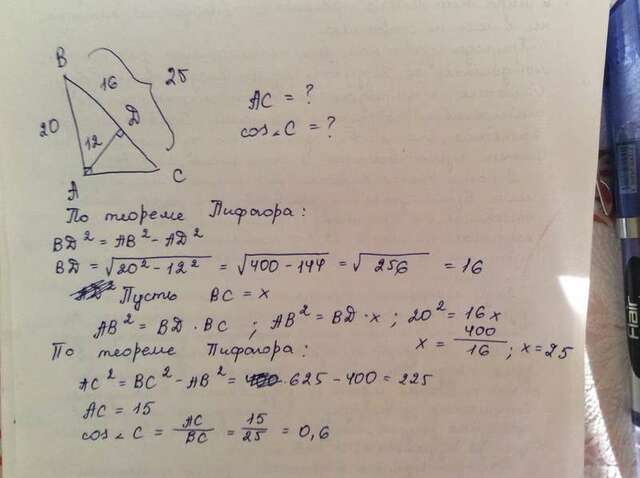 B
16
25
20
D
12
A
C
AC = ?
cos∠C = ?
По теореме Пифагора:
BD² = AB² - AD²
BD = √20² - 12² = √400 - 144 = √256 = 16
Пусть BC = x
AB² = BD · BC ; AB² = BD · x ; 20² = 16x
x = 400/16 ; x = 25
По теореме Пифагора:
AC² = BC² - AB² = 625 - 400 = 225
AC = 15
cos∠C = AC/BC = 15/25 = 0,6
Hair